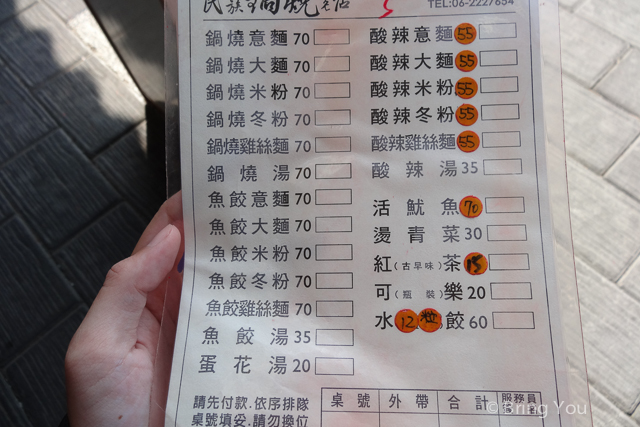 民族鍋燒老店
TEL:06-2227654
鍋燒意麵 70
鍋燒大麵 70
鍋燒米粉 70
鍋燒冬粉 70
鍋燒雞絲麵 70
鍋燒湯 70
魚餃意麵 70
魚餃大麵 70
魚餃米粉 70
魚餃冬粉 70
魚餃雞絲麵 70
魚餃湯 35
蛋花湯 20
酸辣意麵 55
酸辣大麵 55
酸辣米粉 55
酸辣冬粉 55
酸辣雞絲麵 55
酸辣湯 35
活魷魚 70
燙青菜 30
紅(古早味)茶 15
可(瓶裝)樂 20
水 12粒 餃 60
請先付款.依序排隊
桌號填妥.請勿換位
桌號 外帶 合計 服務員
Bring You